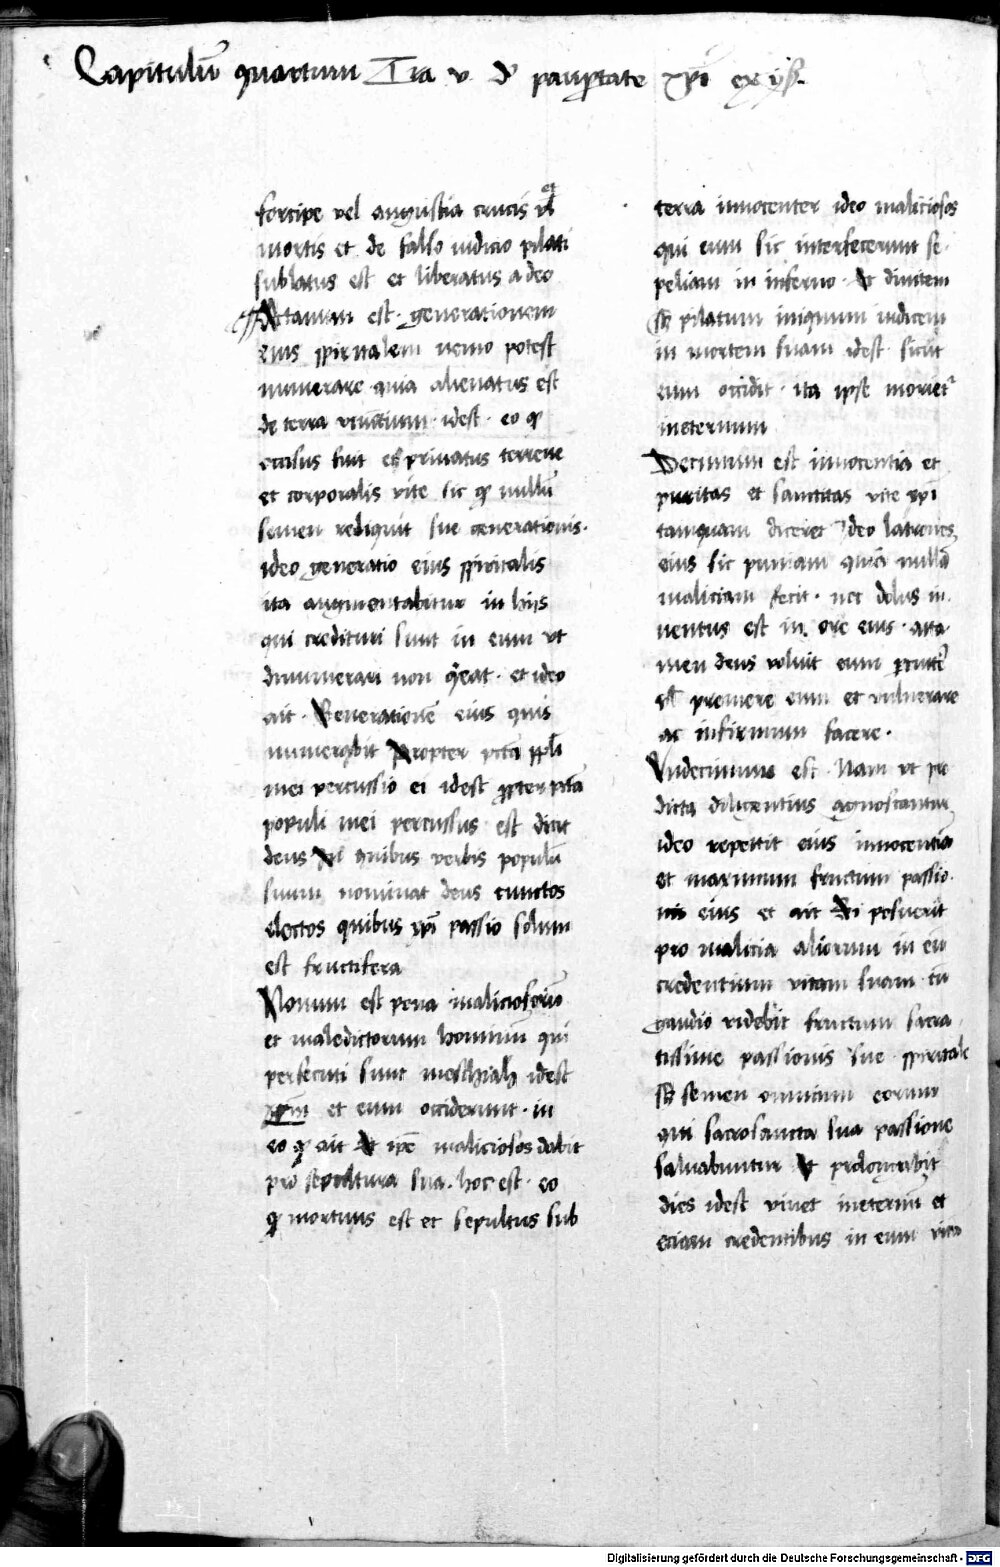 Capitulū quartum Lr̄a v D paupertate xp̄i ex ys.
forcipe vel angustia crucis
mortis et de falso iudicio pilati
sublatus est et liberatus a deo
est. generationem
eius spiritalem nemo potest
numerare quia alienatus est
de terra viuentium. idest. eo ꝙ
occisus fuit et priuatus terrene
et corporalis vite sic ꝙ nullū
semen reliquit sue generationis.
ideo generatio eius spiritalis
ita augmentabitur in hijs
qui credituri sunt in eum vt
dinumerari non q̄eat. et ideo
ait. Generationē eius quis
numerabit Propter pctā ppl̄i
mei percussio ei idest ꝓpter pctā
populi mei percussus est dicit
deus In quibus verbis populū
suum nominat deus cunctos
electos quibus xp̄i passio solum
est fructifera
Nonum est pena maliciosorū
et maledictorum hominū qui
persecuti sunt meschiah idest
xp̄m et eum occiderunt. in
eo ꝙ ait Et ip̄e maliciosos dabit
pro sepultura sua. hoc est. eo
ꝙ mortuus est et sepultus sub
terra innocenter ideo maliciosos
qui eum sic interfecerunt se
peliam in inferno. Et diuitem
pilatum iniquum iudicem
in mortem suam idest. sicut
eum occidit. ita ipse moriet᷑
ineternum
Decimum est innocentia et
puritas et sanctitas vite xp̄i
tamquam diceret Ideo latrones
eius sic puniam quia nullā
maliciam fecit. nec dolus in
uentus est in ore eius. atta
men deus voluit eum
premere eum et vulnerare
ac infirmum facere.
Vndecimum est. Nam vt pre
dicta diligentius agnoscantur
ideo repetit eius innocentiā
et maximum fructum passio
nis eius et ait Si posuerit
pro malicia aliorum in eū
credentium vitam suam. cū
gaudio videbit fructum sacra
tissime passionis sue spiritale
semen omnium eorum
qui sacrosancta sua passione
saluabuntur Et prolongabit
dies idest viuet ineternū et
eciam credentibus in eum
Digitalisierung gefördert durch die Deutsche Forschungsgemeinschaft - DFG